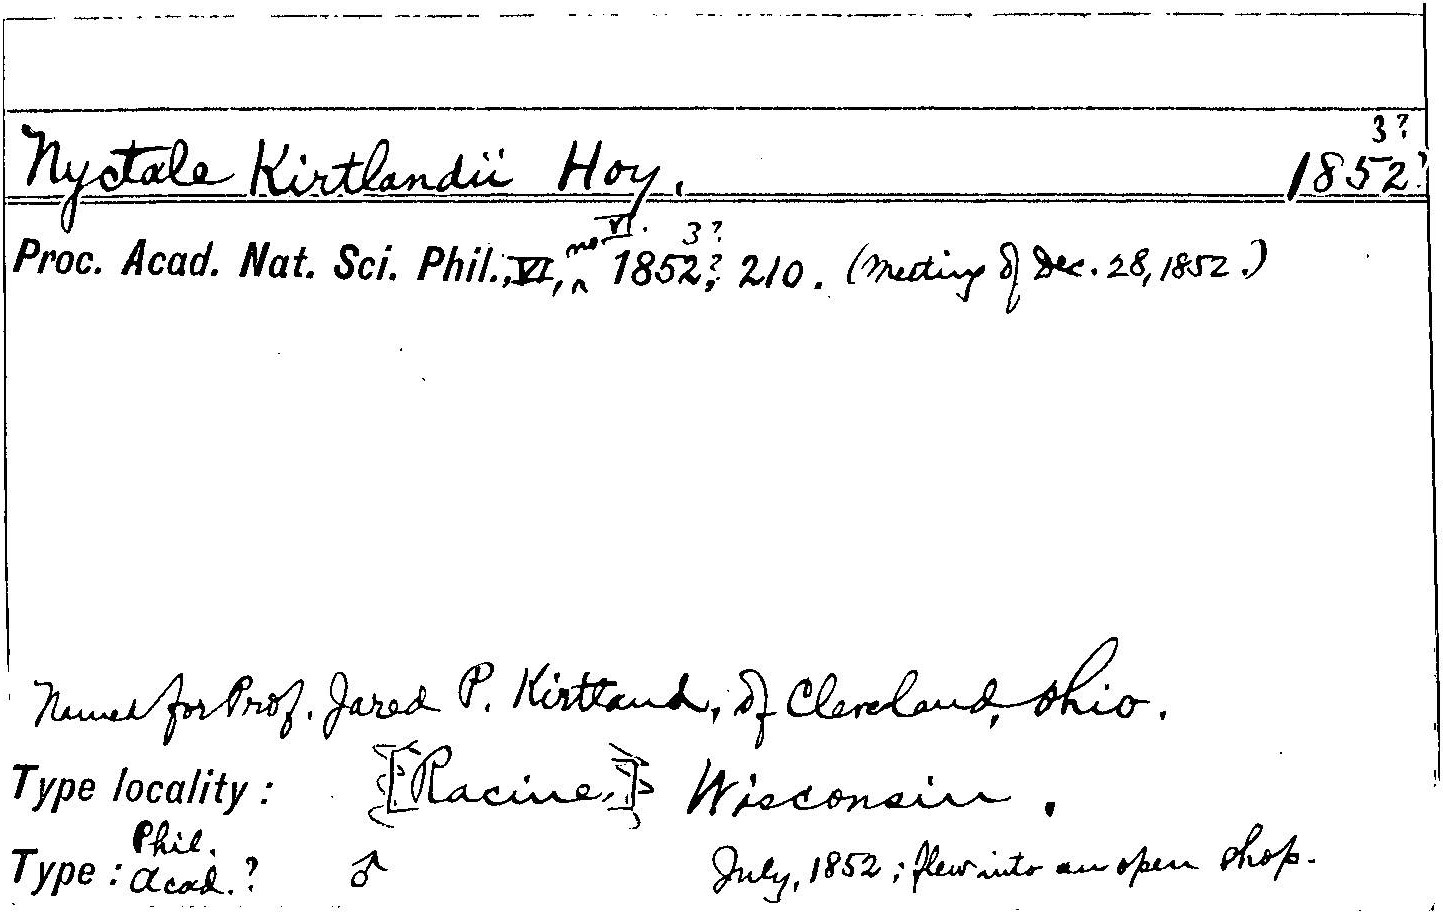 3?
Nyctale Kirtlandii Hoy. 1852?
no. VI. 3?
Proc. Acad. Nat. Sci. Phil., VI, ^ 1852?, 210. (Meeting of Dec. 28, 1852.)
Named for Prof. Jared P. Kirtland, of Cleveland, Ohio.
Type locality: [Racine,] Wisconsin.
Phil.
Type: Acad.? ♂ July, 1852; flew into an open shop.